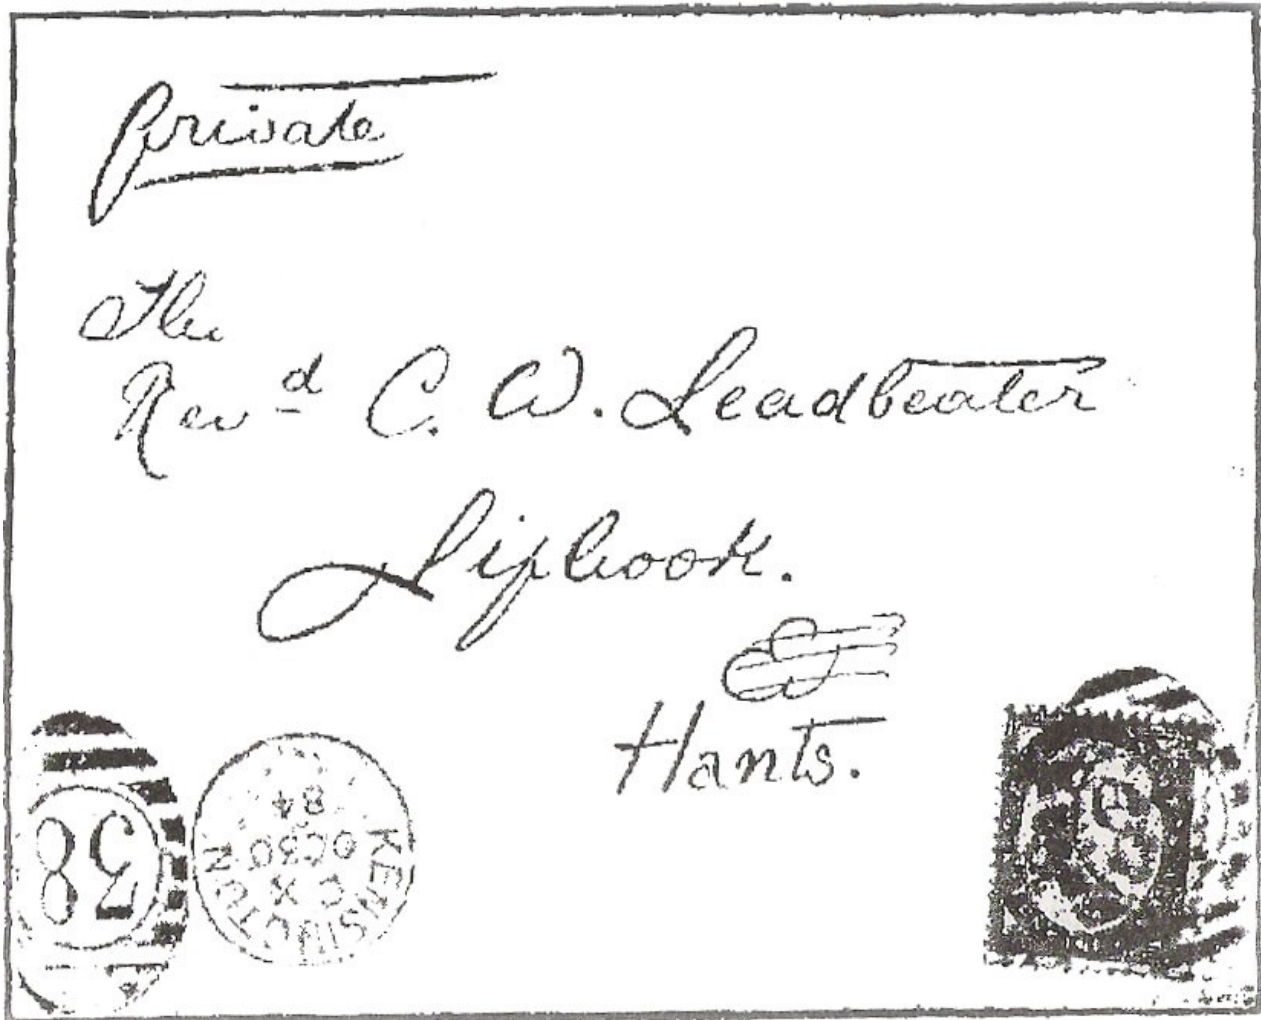 private
The
Revd C. W. Leadbeater
Liphook.
Hants.
38
KENSINGTON
C X
OC 30
84